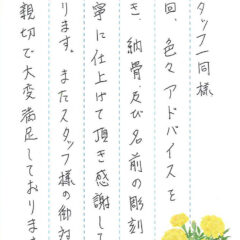 タッフ一同様
回、色々アドバイスを
き、納骨及び名前の彫刻
寧に仕上げて頂き感謝して
ります。またスタッフ様の御対
親切で大変満足しておりま